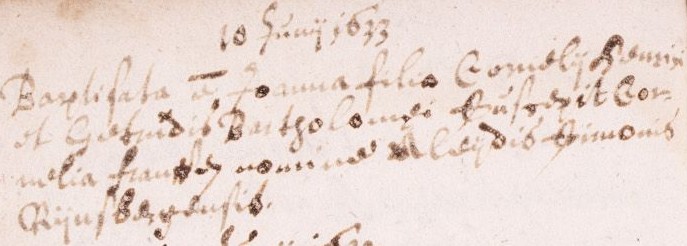 10 Junij 1633
Baptisata ē Joanna filia Cornelij Henrici
et Gertrudis Bartholomei suscepit Cor-
nelia franss nomine Aleijdis Simonis
Rijnsbergensis.